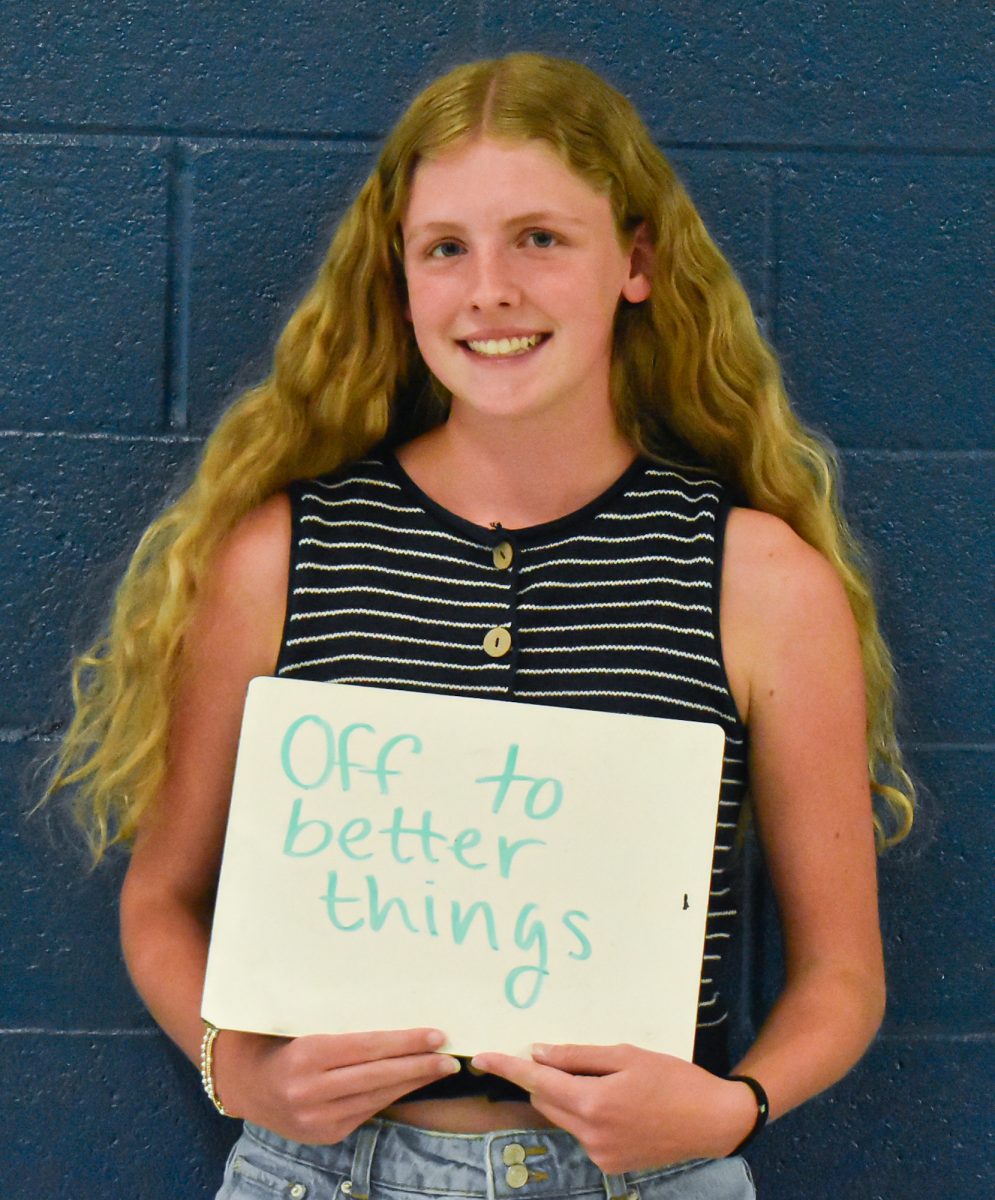 Off to
better
things